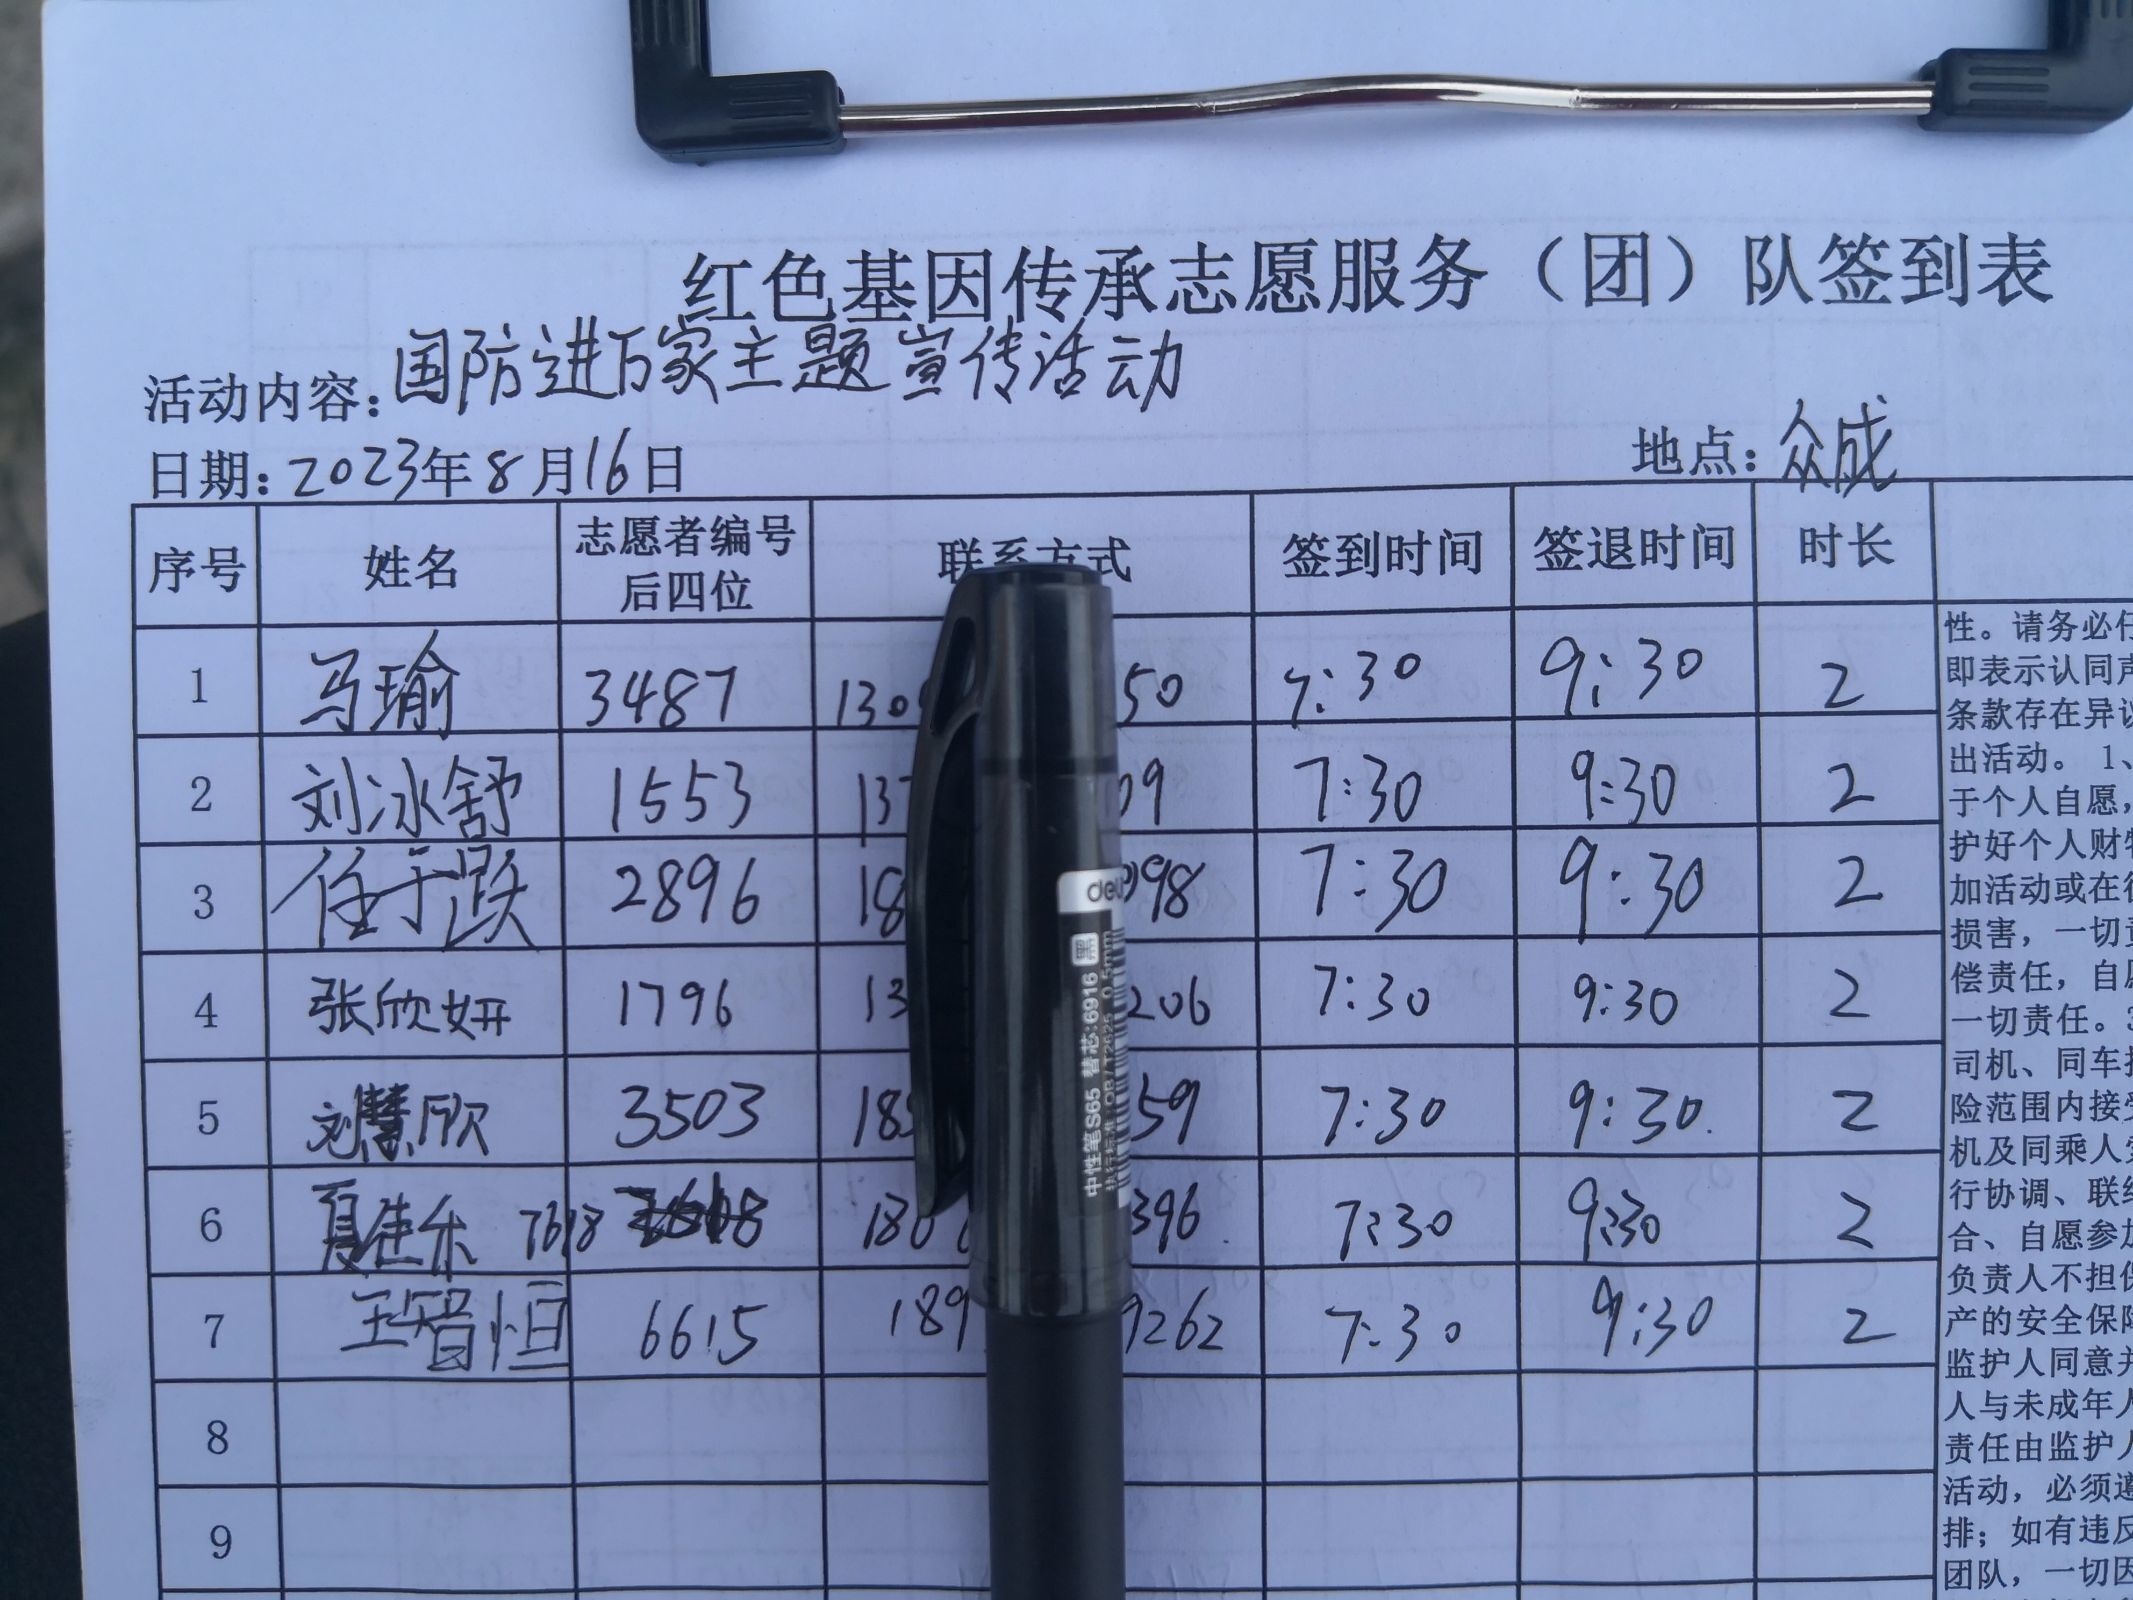 红色基因传承志愿服务（团）队签到表
活动内容：国防进万家主题宣传活动
日期：2023年8月16日 地点：众成
序号 姓名 志愿者编号后四位 联系方式 签到时间 签退时间 时长
1 马瑜 3487 130 50 7:30 9:30 2
2 刘冰舒 1553 137 09 7:30 9:30 2
3 任于跃 2896 18 998 7:30 9:30 2
4 张欣妍 1796 13 206 7:30 9:30 2
5 刘慧欣 3503 189 59 7:30 9:30. 2
6 夏佳乐 7618 180 396. 7:30 9:30 2
7 王智恒 6615 189 9262 7:30 9:30 2
8
9
性。请务必仔
即表示认同声
条款存在异议
出活动。 1、
于个人自愿，
护好个人财物
加活动或在往
损害，一切责
偿责任，自愿
一切责任。3
司机、同车
险范围内接受
机及同乘人
行协调、联络
合、自愿参加
负责人不担保
产的安全保障
监护人同意并
人与未成年人
责任由监护人
活动，必须遵
排；如有违反
团队，一切因
deli
中性笔S65 替芯:6916 黑
执行标准:QB/T2625 0.5mm